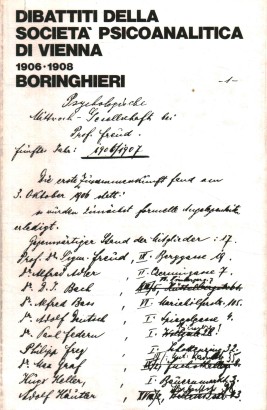 DIBATTITI DELLA
SOCIETA' PSICOANALITICA
DI VIENNA
1906-1908
BORINGHIERI
-1-
Psychologische
Mittwoch-Gesellschaft bei
Prof. Freud.
fünftes Jahr: 1906/1907
Die erste Zusammenkunft fand am
3. Oktober 1906 statt:
es wurden zunächst formelle Angelegenheiten
erledigt.
Gegenwärtiger Stand der Mitglieder: 17.
Prof. Dr. Sigm. Freud, IX. Berggasse 19.
Dr Alfred Adler II. Czerningasse 7.
Dr. D. J. Bach
Dr. Alfred Bass VI. Mariahilferstr. 105.
Dr. Adolf Deutsch I.
Dr. Paul Federn I.
Philipp Frey
Dr. Max Graf
Hugo Heller, I. Bauernmarkt 3.
Adolf Häutler